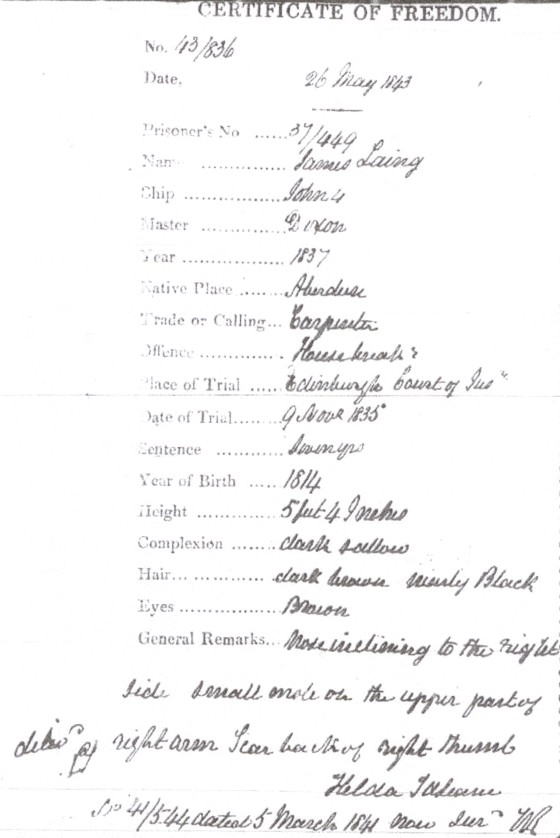 CERTIFICATE OF FREEDOM.
No. 43/836
Date. 26 May 1843
Prisoner's No ...... 37/449
Name ............... James Laing
Ship ................ John 4
Master ............. Dixon
Year ................. 1837
Native Place ....... Aberdeen
Trade or Calling... Carpenter
Offence ............. Housebreakg
Place of Trial ..... Edinburgh Court of Jusy
Date of Trial....... 9 Novr 1835
Sentence ........... Seven yrs
Year of Birth ..... 1814
Height ............. 5 feet 4 Inches
Complexion ........ dark sallow
Hair... ............ dark brown nearly Black
Eyes ................ Brown
General Remarks... Nose inclining to the right
side small mole on the upper part of
right arm Scar back of right thumb
Held a T of Leave
No 41/544 dated 5 March 1841 now